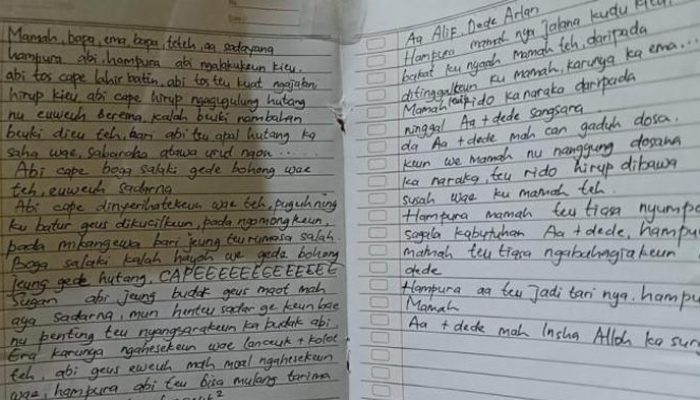 No
Mamah, bapa, ema, bapa, teteh, aa sadayana
hampura abi, hampura abi ngalakukeun kieu.
abi tos cape lahir batin, abi tos teu kuat ngajalani
hirup kieu, abi cape hirup ngagugulung hutang
nu euweuh berema, kalah beuki nambahan
beuki dieu teh, bari abi teu apal hutang ka
saha wae, sabaraha atawa urud naon .....
Abi cape boga salaki gede bohong wae
teh, euweuh sadarna
Abi cape dinyerihatekeun wae teh, puguh ning
ku batur geus dikucilkeun, pada ngomongkeun,
pada mikangewa bari jeung teu rumasa salah.
Boga salaki kalah hayoh we gede bohong
jeung gede hutang, CAPEEEEEEGEEEEEE
Sugan abi jeung budak geus maot mah
aya sadarna, mun henteu sadar ge keun bae
nu penting teu nyangsarakeun ka budak abi
Era karunya ngahesekeun wae lanceuk + kolot
teh, abi geus euweuh mah moal ngahesekeun
wae, hampura abi teu bisa mulang tarima
Aa Alif, Dede Arlan
Hampura mamah nya jalana kudu kieu.
bakat ku nyaah mamah teh, daripada
ditinggalkeun ku mamah, karunya ka ema...
Mamah rido ka naraka daripada
ninggal Aa + dede sangsara
da Aa + dede mah can gaduh dosa.
keun we mamah nu nanggung dosana
ka naraka, teu rido hirup dibawa
susah wae ku mamah teh.
Hampura mamah teu tiasa nyumpo
sagala kabutuhan Aa + dede, hampu
mamah teu tiasa ngabahagiakeun
dede
Hampura aa teu jadi tari nya. hampu
Mamah
Aa + dede mah Insha Alloh ka sur